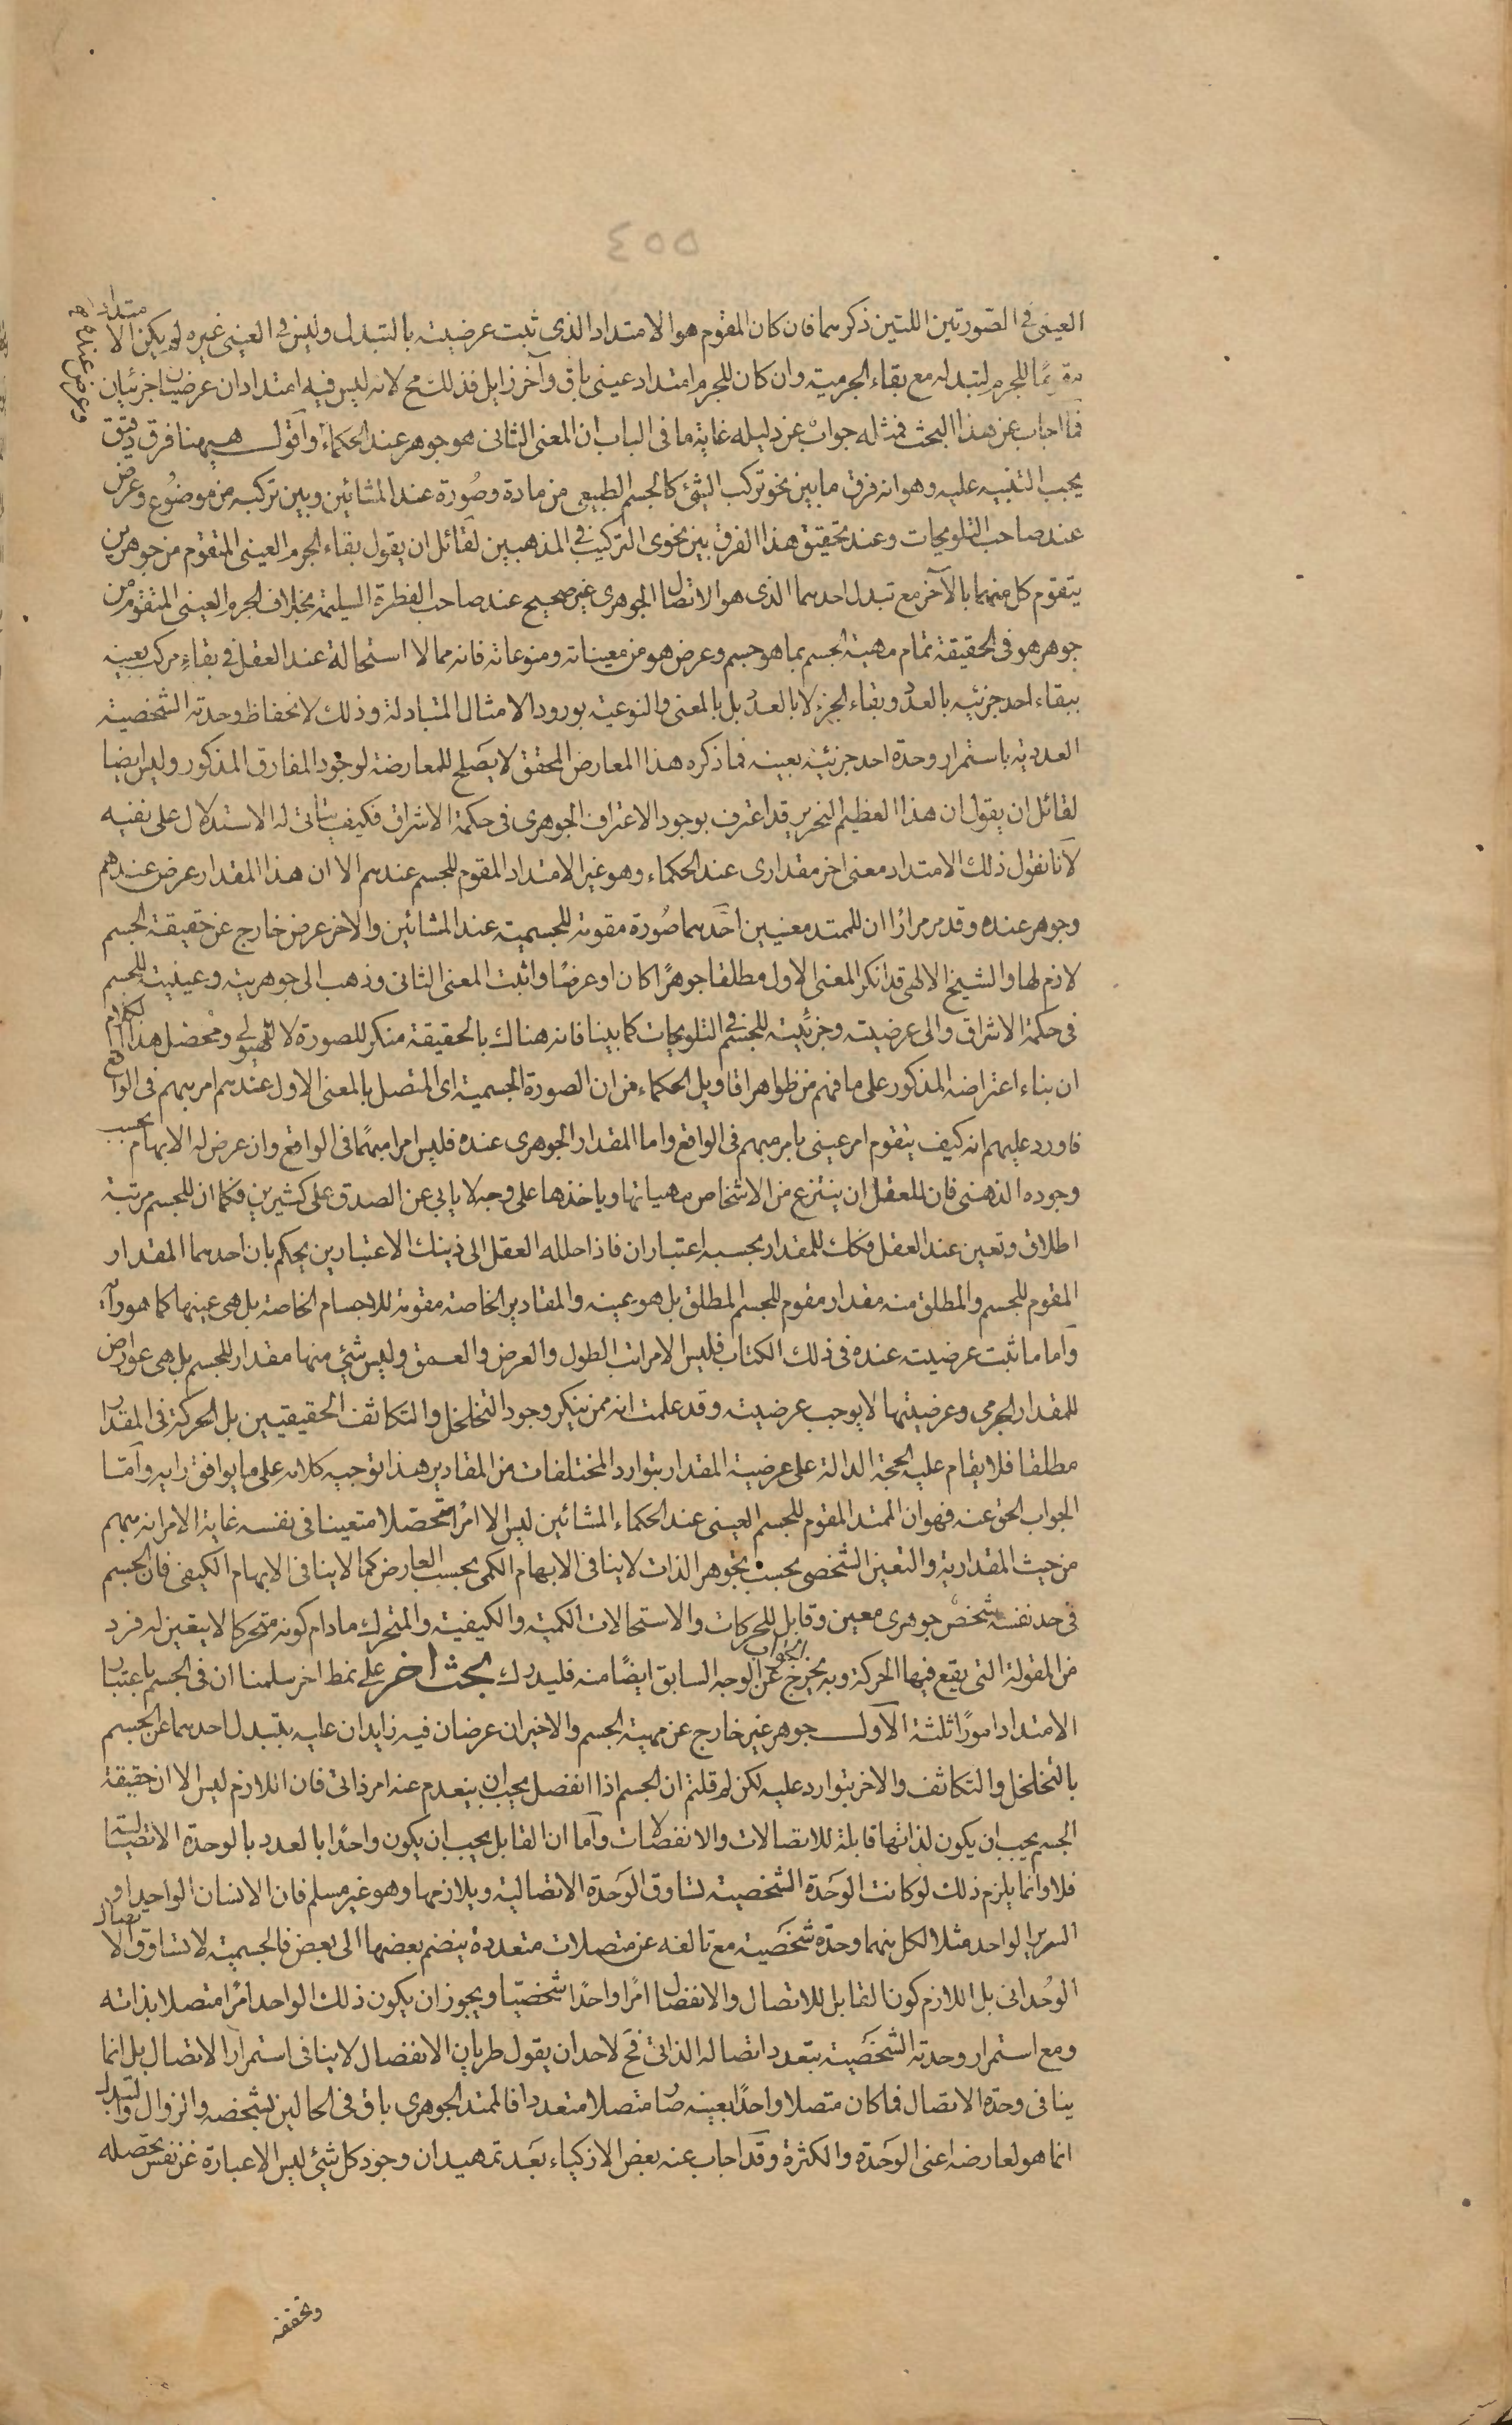 ٤٥٥
العينى فى الصورتين اللتين ذكرهما فان كان المقوم هو الامتداد الذى ثبت عرضيته بالتبدل وليس فى العينى غيره لم يكن الامتداد
مقومًا للجرم لتبدله مع بقاء الجرمية وان كان للجرم امتداد عينى باق وآخر زايل فذلك مح لانه ليس فيه امتدادان عرضيان جزئيان
فما اجاب عن هذا البحث فمثله جواب عن دليله غاية ما فى الباب ان المعنى الثانى هو جوهر عند الحكماء وعرض عنده وأقول ههنا فرق دقيق
يجب التنبيه عليه وهو انه فرق ما بين نحو تركب الشئ كالجسم الطبيعى من مادة وصورة عند المشائين وبين تركبه من موضوع وعرض
عند صاحب التلويحات وعند تحقيق هذا الفرق بين نحوى التركيب فى المذهبين لقائل ان يقول بقاء الجرم العينى المتقوم من جوهرين
يتقوم كل منهما بالآخر مع تبدل احدهما الذى هو الاتصال الجوهرى غير صحيح عند صاحب الفطرة السليمة بخلاف الجرم العينى المتقوم من
جوهر هو فى الحقيقة تمام مهية الجسم بما هو جسم وعرض هو من معيناته ومنوعاته فانه مما لا استحالة عند العقل فى بقاء مركب بعينه
ببقاء احد جزئيه بالعدد وبقاء الجزء لا بالعدد بل بالمعنى والنوعية بورود الامثال المتبادلة وذلك لانحفاظ وحدته الشخصية
العددية باستمرار وحدة احد جزئيه بعينه فما ذكره هذا المعارض المحقق لا يصلح للمعارضة لوجود المفارق المذكور وليس ايضا
لقائل ان يقول ان هذا العظيم النحرير قد اعترف بوجود الاعتراف الجوهرى فى حكمة الاشراق فكيف يتأتى له الاستدلال على نفيه
لانا نقول ذلك الامتداد معنى اخر مقدارى عند الحكماء وهو غير الامتداد المقوم للجسم عندهم الا ان هذا المقدار عرض عندهم
وجوهر عنده وقد مر مرارًا ان للممتد معنيين احدهما صورة مقومة للجسمية عند المشائين والاخر عرض خارج عن حقيقة الجسم
لازم لها والشيخ الالهى قد انكر المعنى الاول مطلقا جوهرًا كان او عرضًا واثبت المعنى الثانى وذهب الى جوهريته وعينيته للجسم
فى حكمة الاشراق والى عرضيته وجزئيته للجسم فى التلويحات كما بينا فانه هناك بالحقيقة منكر للصورة لا للهيولى ومحصل هذا الكلام
ان بناء اعتراضه المذكور على ما فهم من ظواهر اقاويل الحكماء من ان الصورة الجسمية اى المتصل بالمعنى الاول عندهم امر مبهم فى الواقع
فاورد عليهم انه كيف يتقوم امر عينى بامر مبهم فى الواقع واما المقدار الجوهرى عنده فليس امرا مبهمًا فى الواقع وان عرض له الابهام بحسب
وجوده الذهنى فان للعقل ان ينتزع من الاشخاص مهياتها وياخذها على وجه لا يابى عن الصدق على كثيرين فكما ان للجسم مرتبة
اطلاق وتعين عند العقل فكك للمقدار بحسبه اعتباران فاذا حلله العقل الى ذينك الاعتبارين يحكم بان احدهما المقدار
المقوم للجسم والمطلق منه مقدار مقوم للجسم المطلق بل هو بعينه والمقادير الخاصة مقومة للاجسام الخاصة بل هى عينها كما هو رأيه
وأما ما ثبت عرضيته عنده فى ذلك الكتاب فليس الا مراتب الطول والعرض والعمق وليس شئ منها مقدار للجسم بل هى عوارض
للمقدار الجرمى وعرضيتها لا يوجب عرضيته وقد علمت انه ممن ينكر وجود التخلخل والتكاثف الحقيقيين بل الحركة فى المقدار
مطلقا فلا يقام عليه الحجة الدالة على عرضية المقدار بتوارد المختلفات من المقادير هذا توجيه كلامه على ما يوافق رايه وأمّا
الجواب الحق عنه فهو ان الممتد المقوم للجسم العينى عند الحكماء المشائين ليس الا امرًا متحصّلا متعينا فى نفسه غاية الامر انه مبهم
من حيث المقدارية والتعين الشخصى بحسب تجوهر الذات لا ينافى الابهام الكمى بحسب العارض كما لا ينافى الابهام الكيفى فان الجسم
فى حد نفسه شخص جوهرى معين وقابل للحركات والاستحالات الكمية والكيفية والمتحرك مادام كونه متحركا لا يتعين له فرد
من المقولة التى يقع فيها الحركة وبه يخرج الجواب عن الوجه السابق ايضًا منه فليدرك بحث اخر على نمط اخر سلمنا ان فى الجسم باعتبار
الامتداد امورًا ثلثة الأول جوهر غير خارج عن مهية الجسم والاخيران عرضان فيه زايدان عليه يتبدل احدهما عن الجسم
بالتخلخل والتكاثف والاخر يتوارد عليه لكن لم قلتم ان الجسم اذا انفصل يجب ان ينعدم عنه امر ذاتى فان اللازم ليس الا ان حقيقة
الجسم يجب ان يكون لذاتها قابلة للاتصالات والانفصالات وأما ان القابل يجب ان يكون واحدًا بالعدد بالوحدة الاتصالية
فلا وانما يلزم ذلك لو كانت الوحدة الشخصية تساوق الوحدة الاتصالية ويلازمها وهو غير مسلم فان الانسان الواحد او
السرير الواحد مثلا لكل منهما وحدة شخصية مع تالفه عن متصلات متعددة ينضم بعضها الى بعض فالجسمية لا تساوق الاتصال
الوحدانى بل اللازم كون القابل للاتصال والانفصال امرًا واحدًا شخصيّا ويجوز ان يكون ذلك الواحد امرًا متصلا بذاته
ومع استمرار وحدته الشخصية يتعدد اتصاله الذاتى فح لاحد ان يقول طريان الانفصال لا ينافى استمرار الاتصال بل انما
ينافى وحدة الاتصال فما كان متصلا واحدًا بعينه صار متصلا متعددا فالممتد الجوهرى باق فى الحالين بشخصه والزوال والتبدل
انما هو لعارضه اعنى الوحدة والكثرة وقد اجاب عنه بعض الازكياء بعد تمهيد ان وجود كل شئ ليس الا عبارة عن نفس تحصله
وتحققه